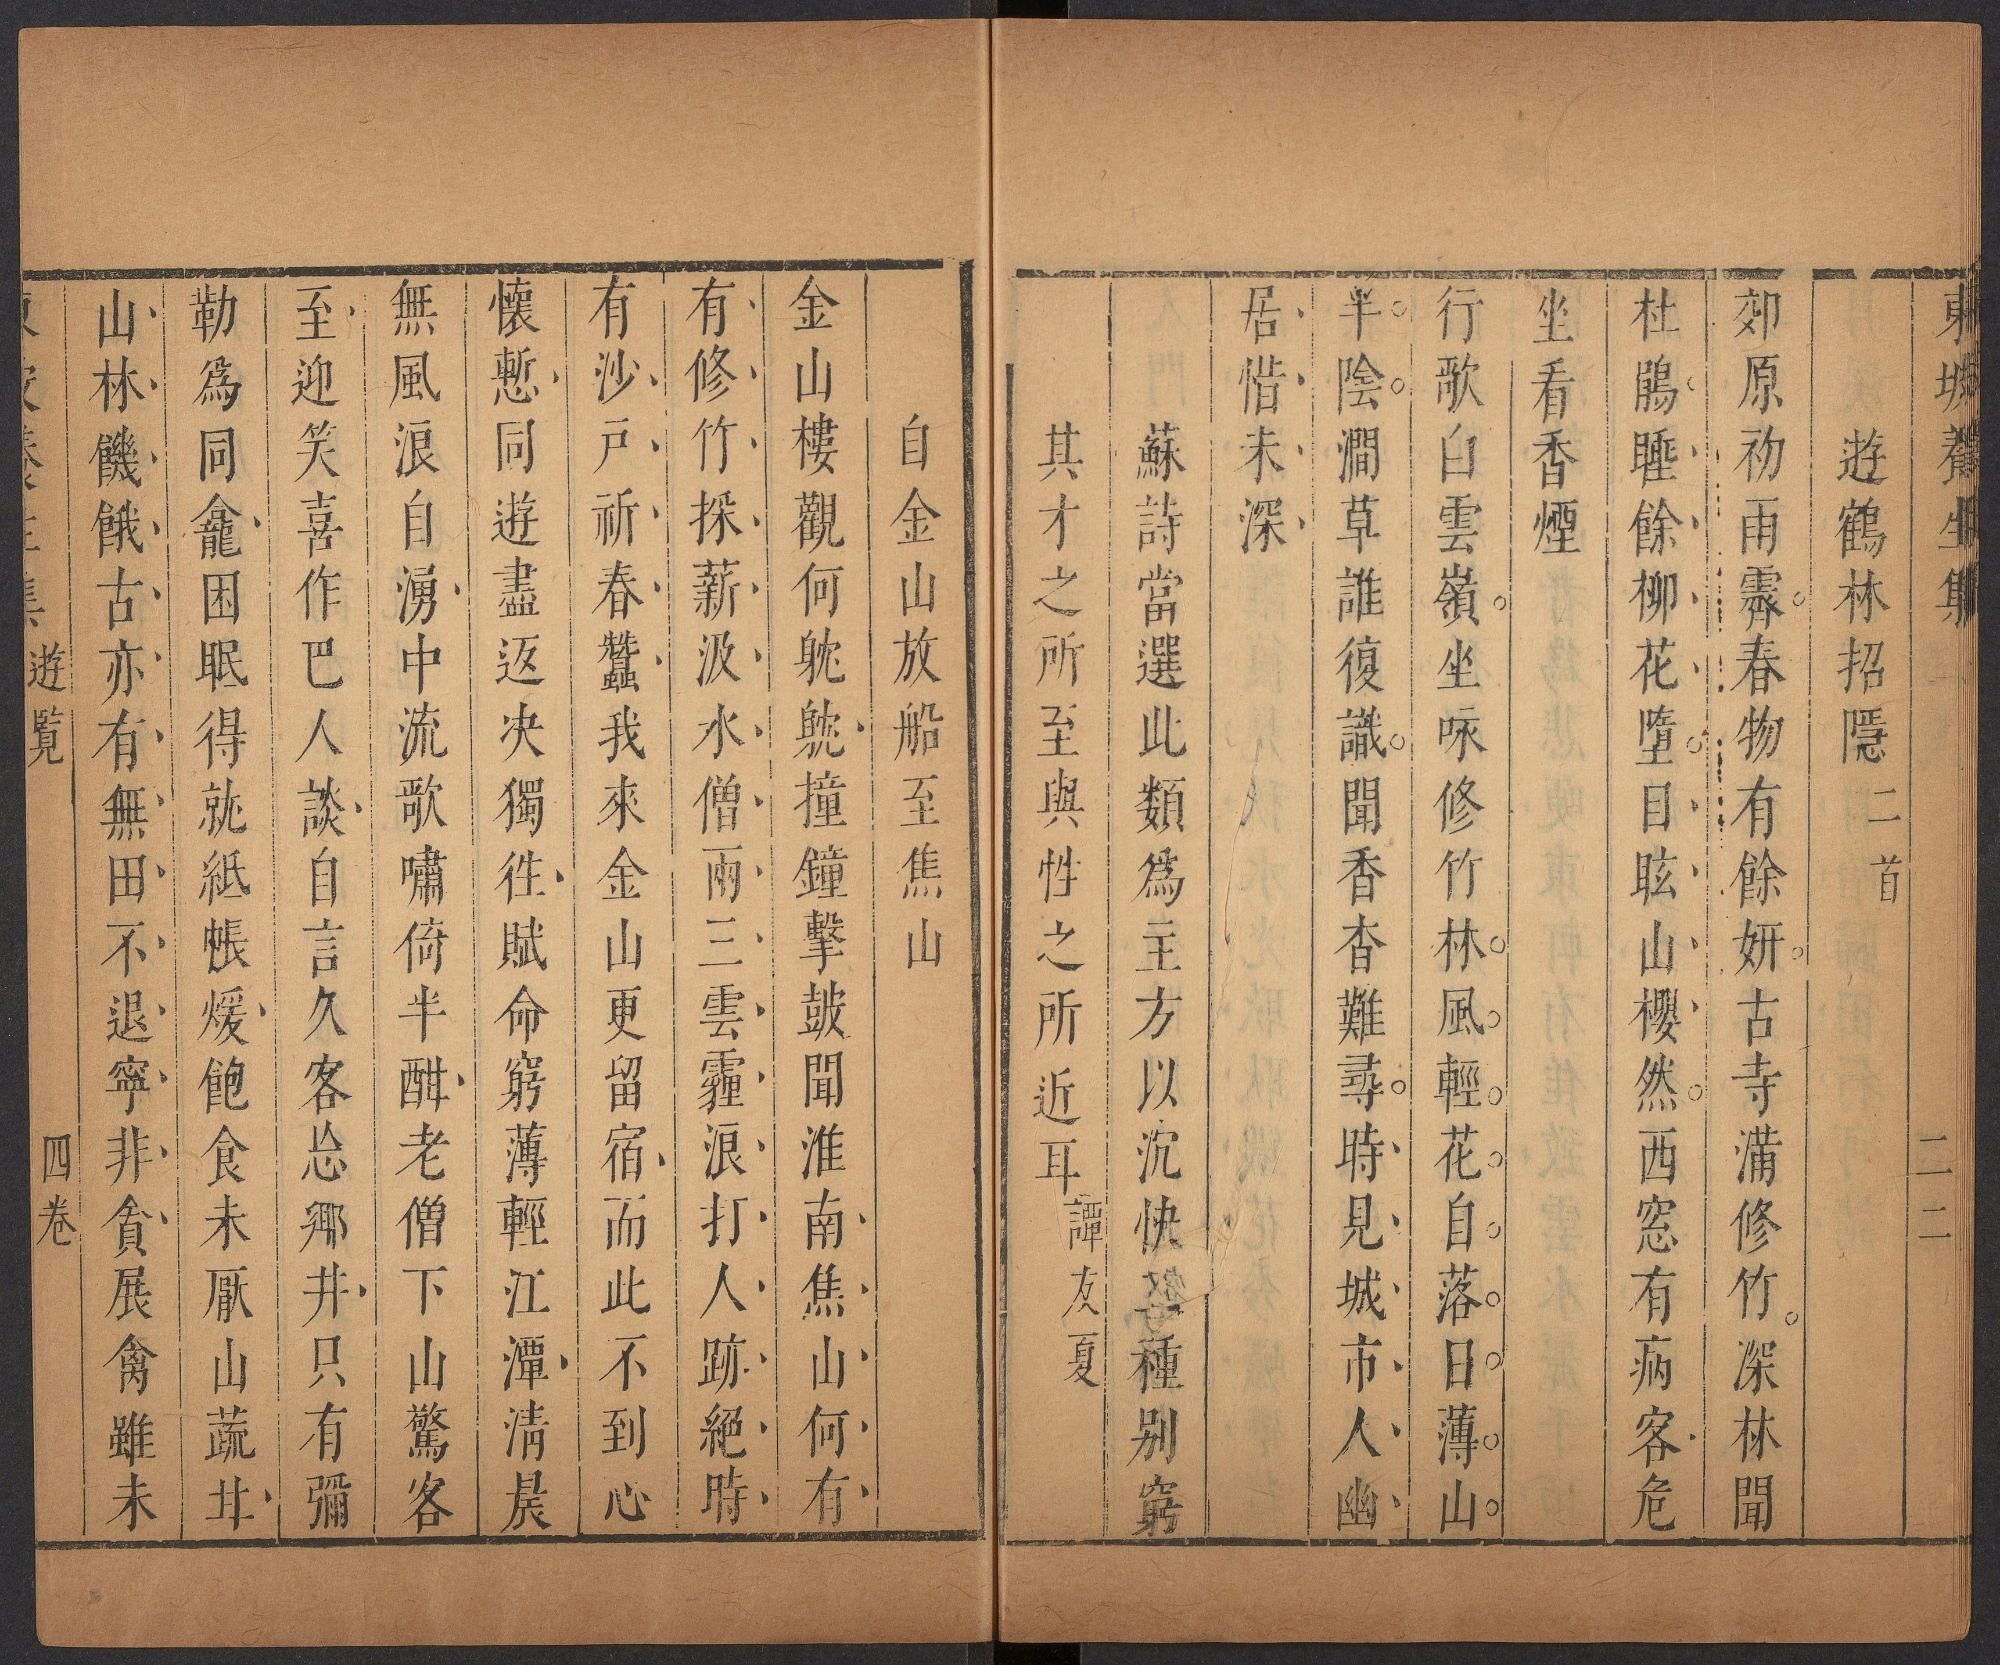 東坡養生集
二二
遊鶴林招隱 二首
郊原初雨霽春物有餘妍古寺滿修竹深林聞
杜鵑睡餘柳花墮目眩山櫻然西窓有病客危
坐看香煙
行歌白雲嶺坐咏修竹林風輕花自落日薄山
半陰澗草誰復識聞香杳難尋時見城市人幽
居惜未深
蘇詩當選此類爲主方以沉快
一種別窮
其才之所至與性之所近耳 譚友夏
自金山放船至焦山
金山樓觀何躭躭撞鐘擊鼓聞淮南焦山何有
有修竹採薪汲水僧兩三雲霾浪打人跡絕時
有沙戸祈春蠶我來金山更留宿而此不到心
懷慙同遊盡返决獨徃賦命窮薄輕江潭清晨
無風浪自湧中流歌嘯倚半酣老僧下山驚客
至迎笑喜作巴人談自言久客忘鄉井只有彌
勒爲同龕困眠得就紙帳煖飽食未厭山蔬甘
山林饑餓古亦有無田不退寧非貪展禽雖未
遊覧
四卷